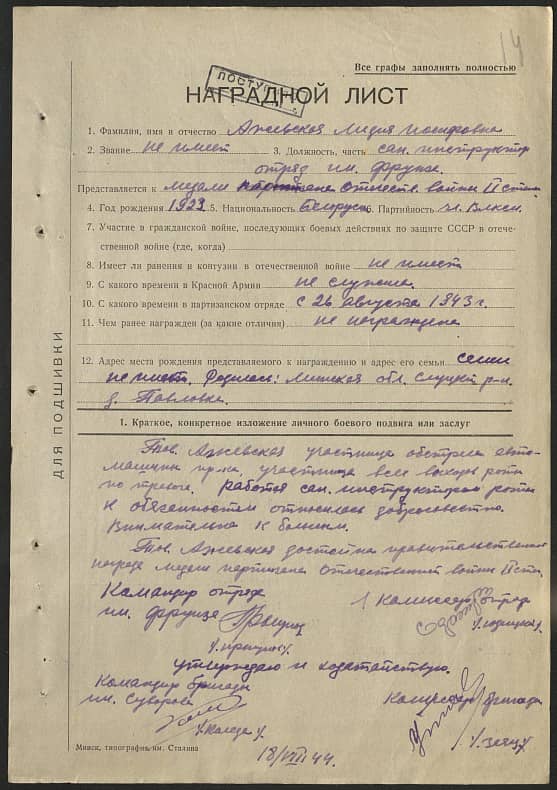 14
Все графы заполнять полностью
ПОСТУ
НАГРАДНОЙ ЛИСТ
1. Фамилия, имя и отчество Ажевская Лидия Иосифовна
2. Звание не имеет 3. Должность, часть сан. инструктор
отряд им. Фрунзе.
Представляется к медали партизана Отечеств. войны II степ.
4. Год рождения 1923 5. Национальность Белорус 6. Партийность чл. ВЛКСМ.
7. Участие в гражданской войне, последующих боевых действиях по защите СССР в отече-
ственной войне (где, когда)
8. Имеет ли ранения и контузии в отечественной войне не имеет
9. С какого времени в Красной Армии не служила
10. С какого времени в партизанском отряде с 26 августа 1943 г.
11. Чем ранее награжден (за какие отличия) не награждена
12. Адрес места рождения представляемого к награждению и адрес его семьи семьи
не имеет. Родилась: Минская обл. Слуцкий р-н
д. Павловка.
ДЛЯ ПОДШИВКИ
1. Краткое, конкретное изложение личного боевого подвига или заслуг
Тов. Ажевская участница обстрела авто-
машины пр-ка, участница всех выходов роты
по тревоге. Работая сан. инструктором роты
к обязанностям относилась добросовестно.
Внимательна к больным.
Тов. Ажевская достойна правительственной
награде медали партизана Отечественной войны II степ.
Командир отряда
им. Фрунзе
Комиссар отряда
утверждаю и ходатайствую.
Командир бригады
им. Суворова
Комиссар бригады
18/VIII 44.
Минск, типография им. Сталина